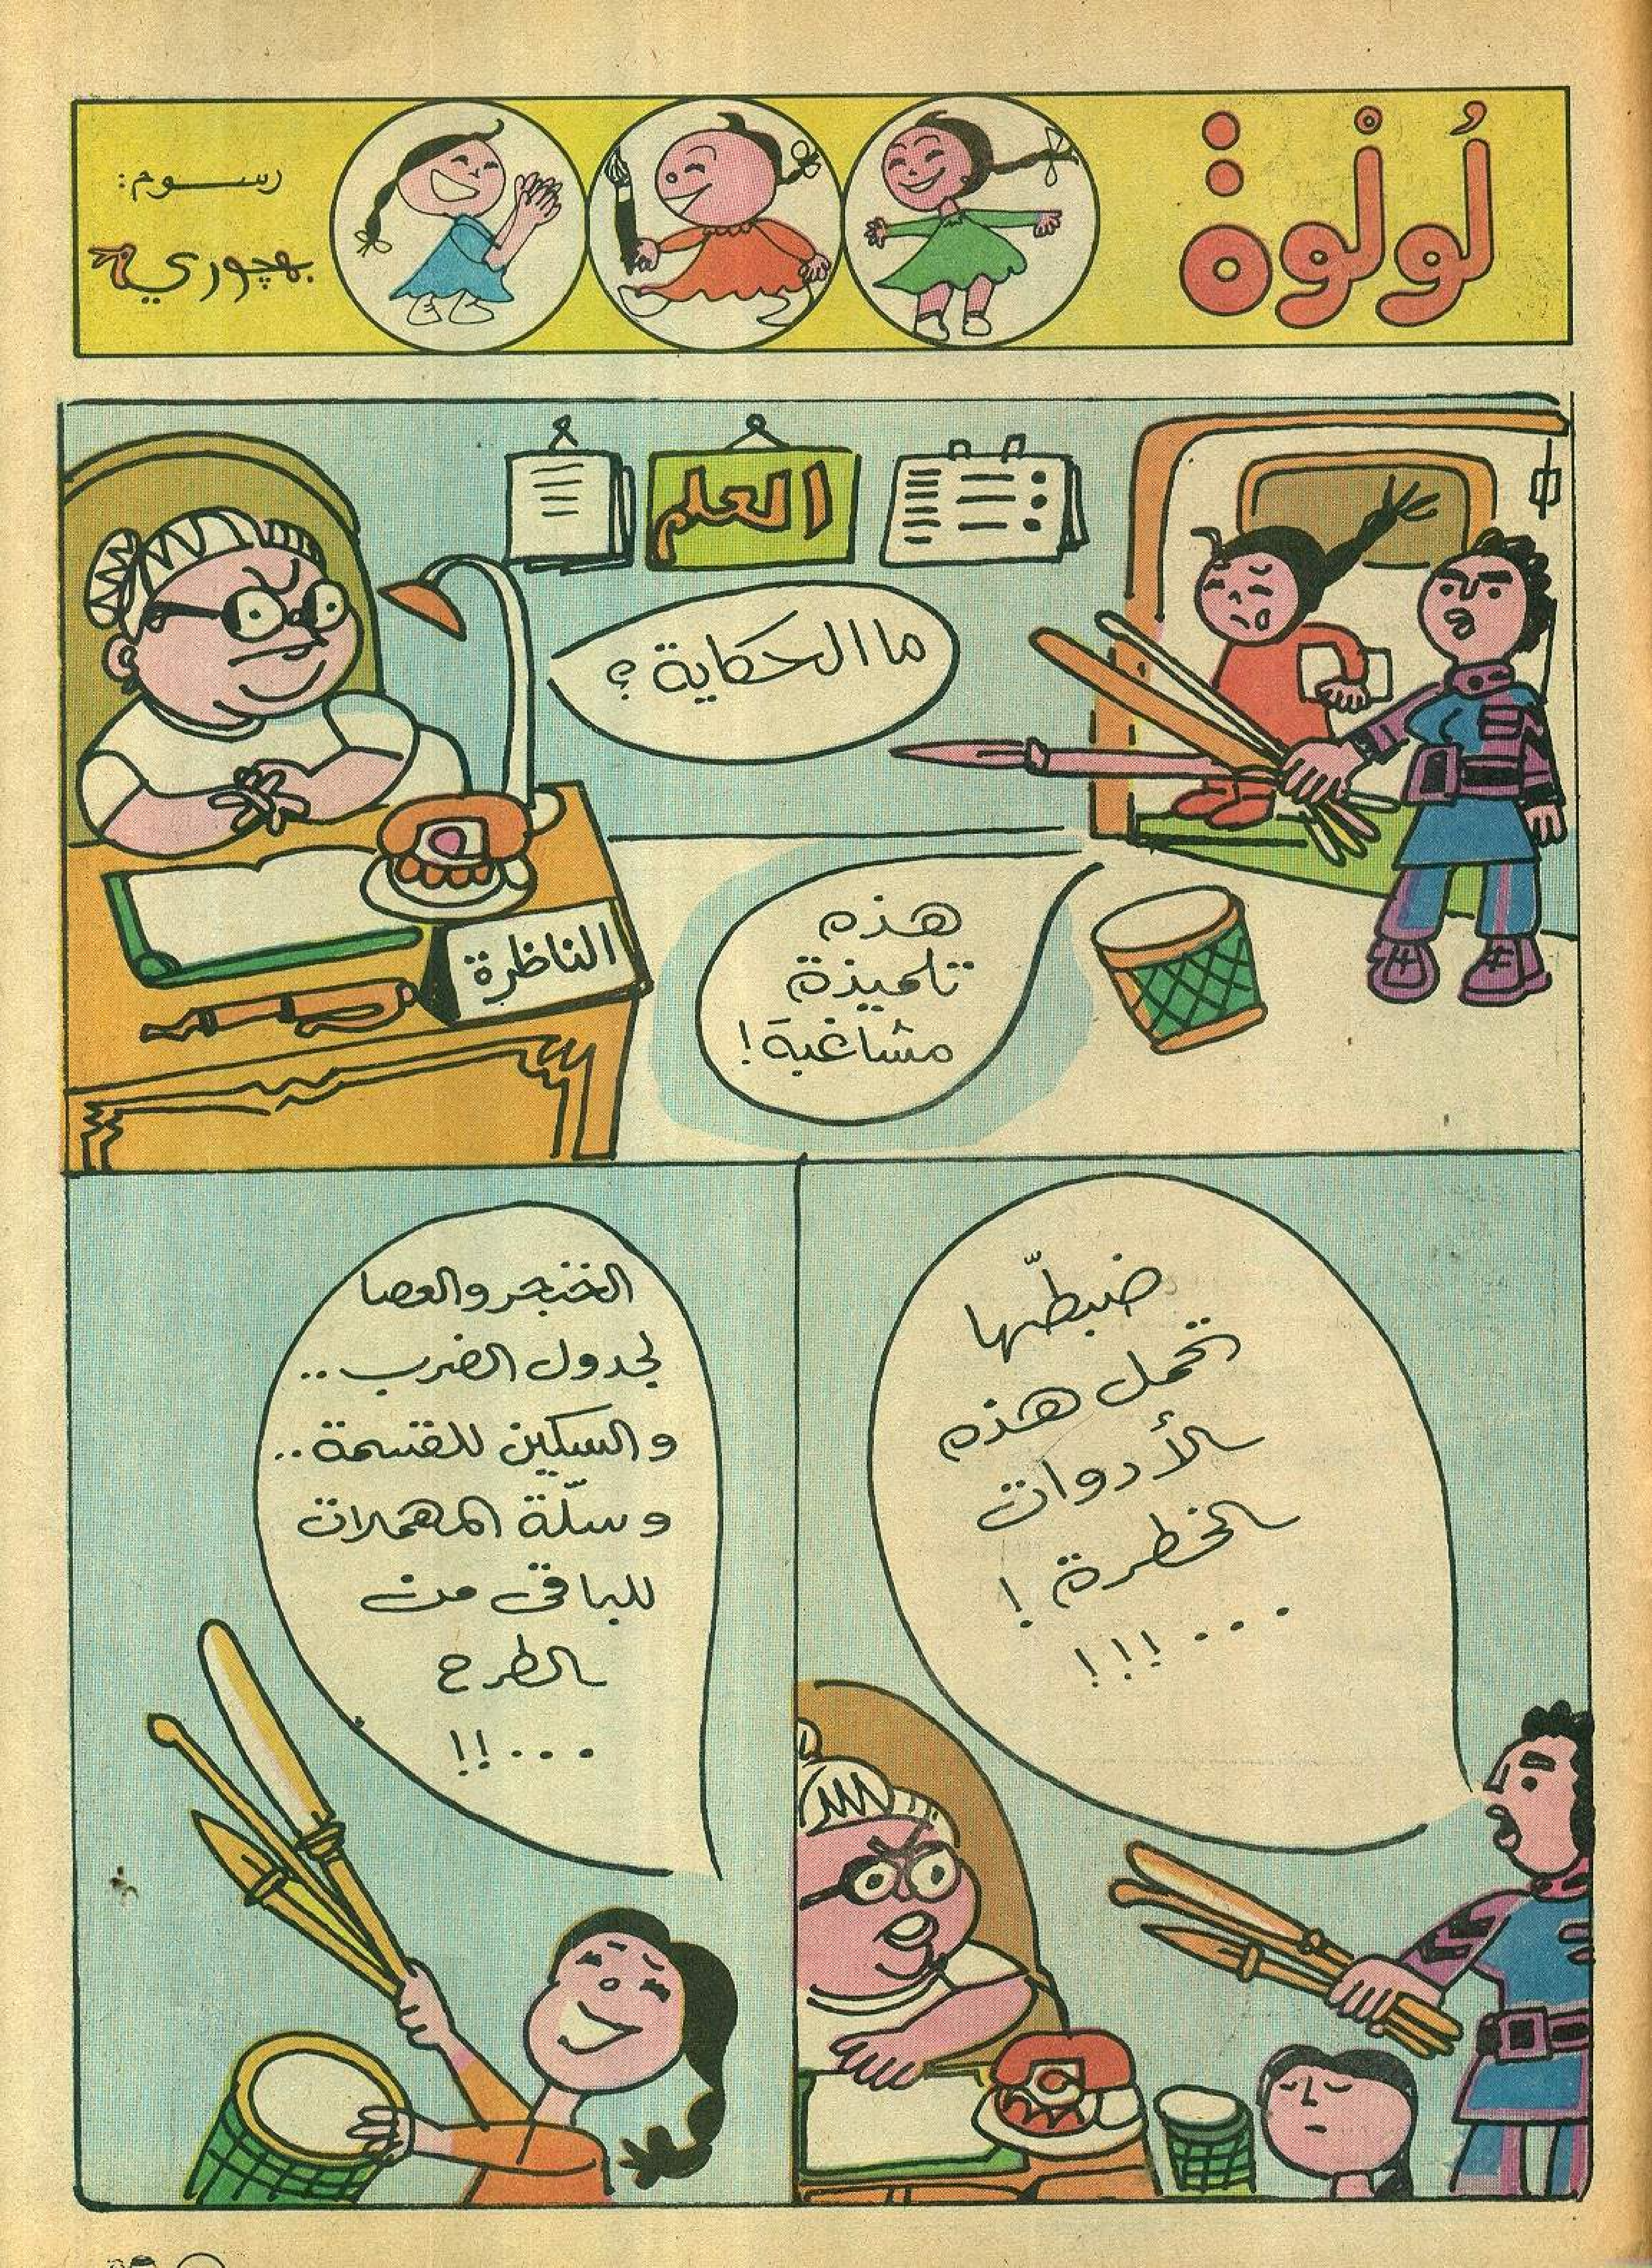 لُولْوة
رسوم:
بهجوري
العلم
ما الحكاية؟
هذه
تلميذة
مشاغبة!
الناظرة
ضبطّها
تحمل هذه
الأدوات
الخطرة!
...!!!
الخنجر والعصا
لجدول الضرب..
والسكين للقسمة..
وسلّة المهملات
للباقى من
الطرح
...!!